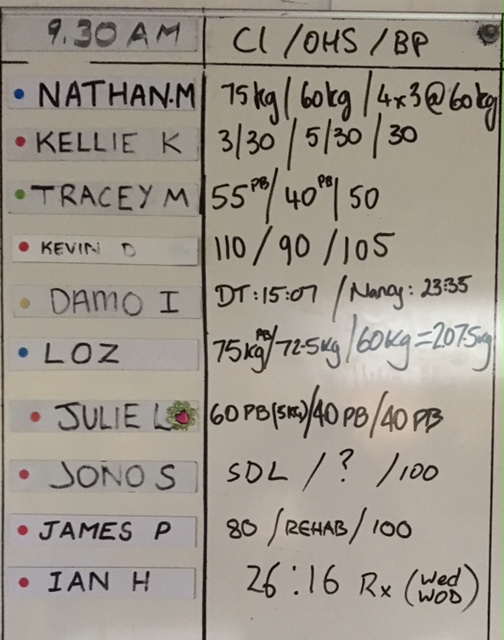 9.30 AM CI / OHS / BP
NATHAN.M 75kg / 60kg / 4x3@60kg
KELLIE K 3/30 / 5/30 / 30
TRACEY M 55PB / 40PB / 50
KEVIN D 110 / 90 / 105
DAMO I DT: 15:07 / Nancy: 23:35
LOZ 75kgPB / 72.5kg / 60kg = 207.5kg
JULIE L 60 PB (5kg) / 40 PB / 40 PB
JONO S SDL / ? / 100
JAMES P 80 / REHAB / 100
IAN H 26:16 Rx (Wed WOD)